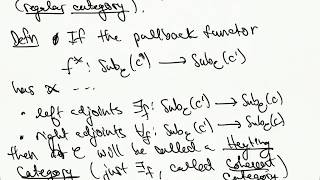 (regular category).
Defn If the pullback functor
f* : Sub_C(c') → Sub_C(c')
has ...
• left adjoints ∃_f : Sub_C(c') → Sub_C(c)
• right adjoints ∀_f : Sub_C(c') → Sub_C(c)
then C will be called a Heyting
Category (just ∃_f, called Coherent
Category